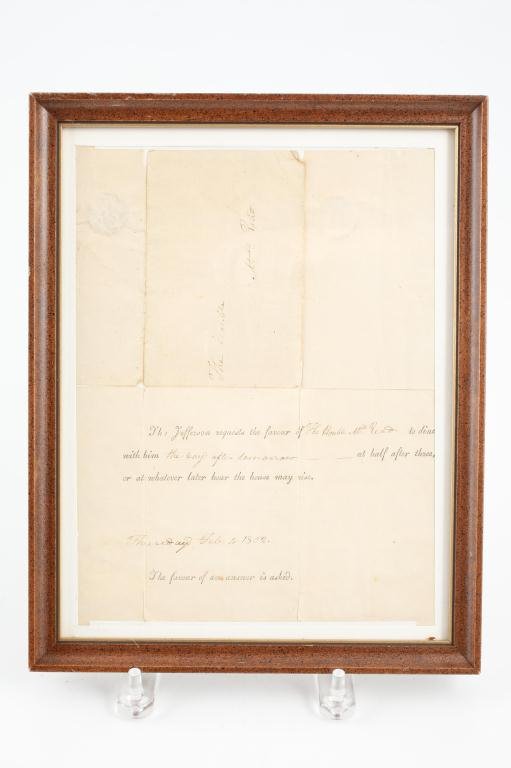 The Honble
Mr. Read
Th: Jefferson requests the favour of The Honble Mr. Read to dine
with him the day after tomorrow at half after three,
or at whatever later hour the house may rise.
Thursday Feb. 4 1802.
The favour of an answer is asked.